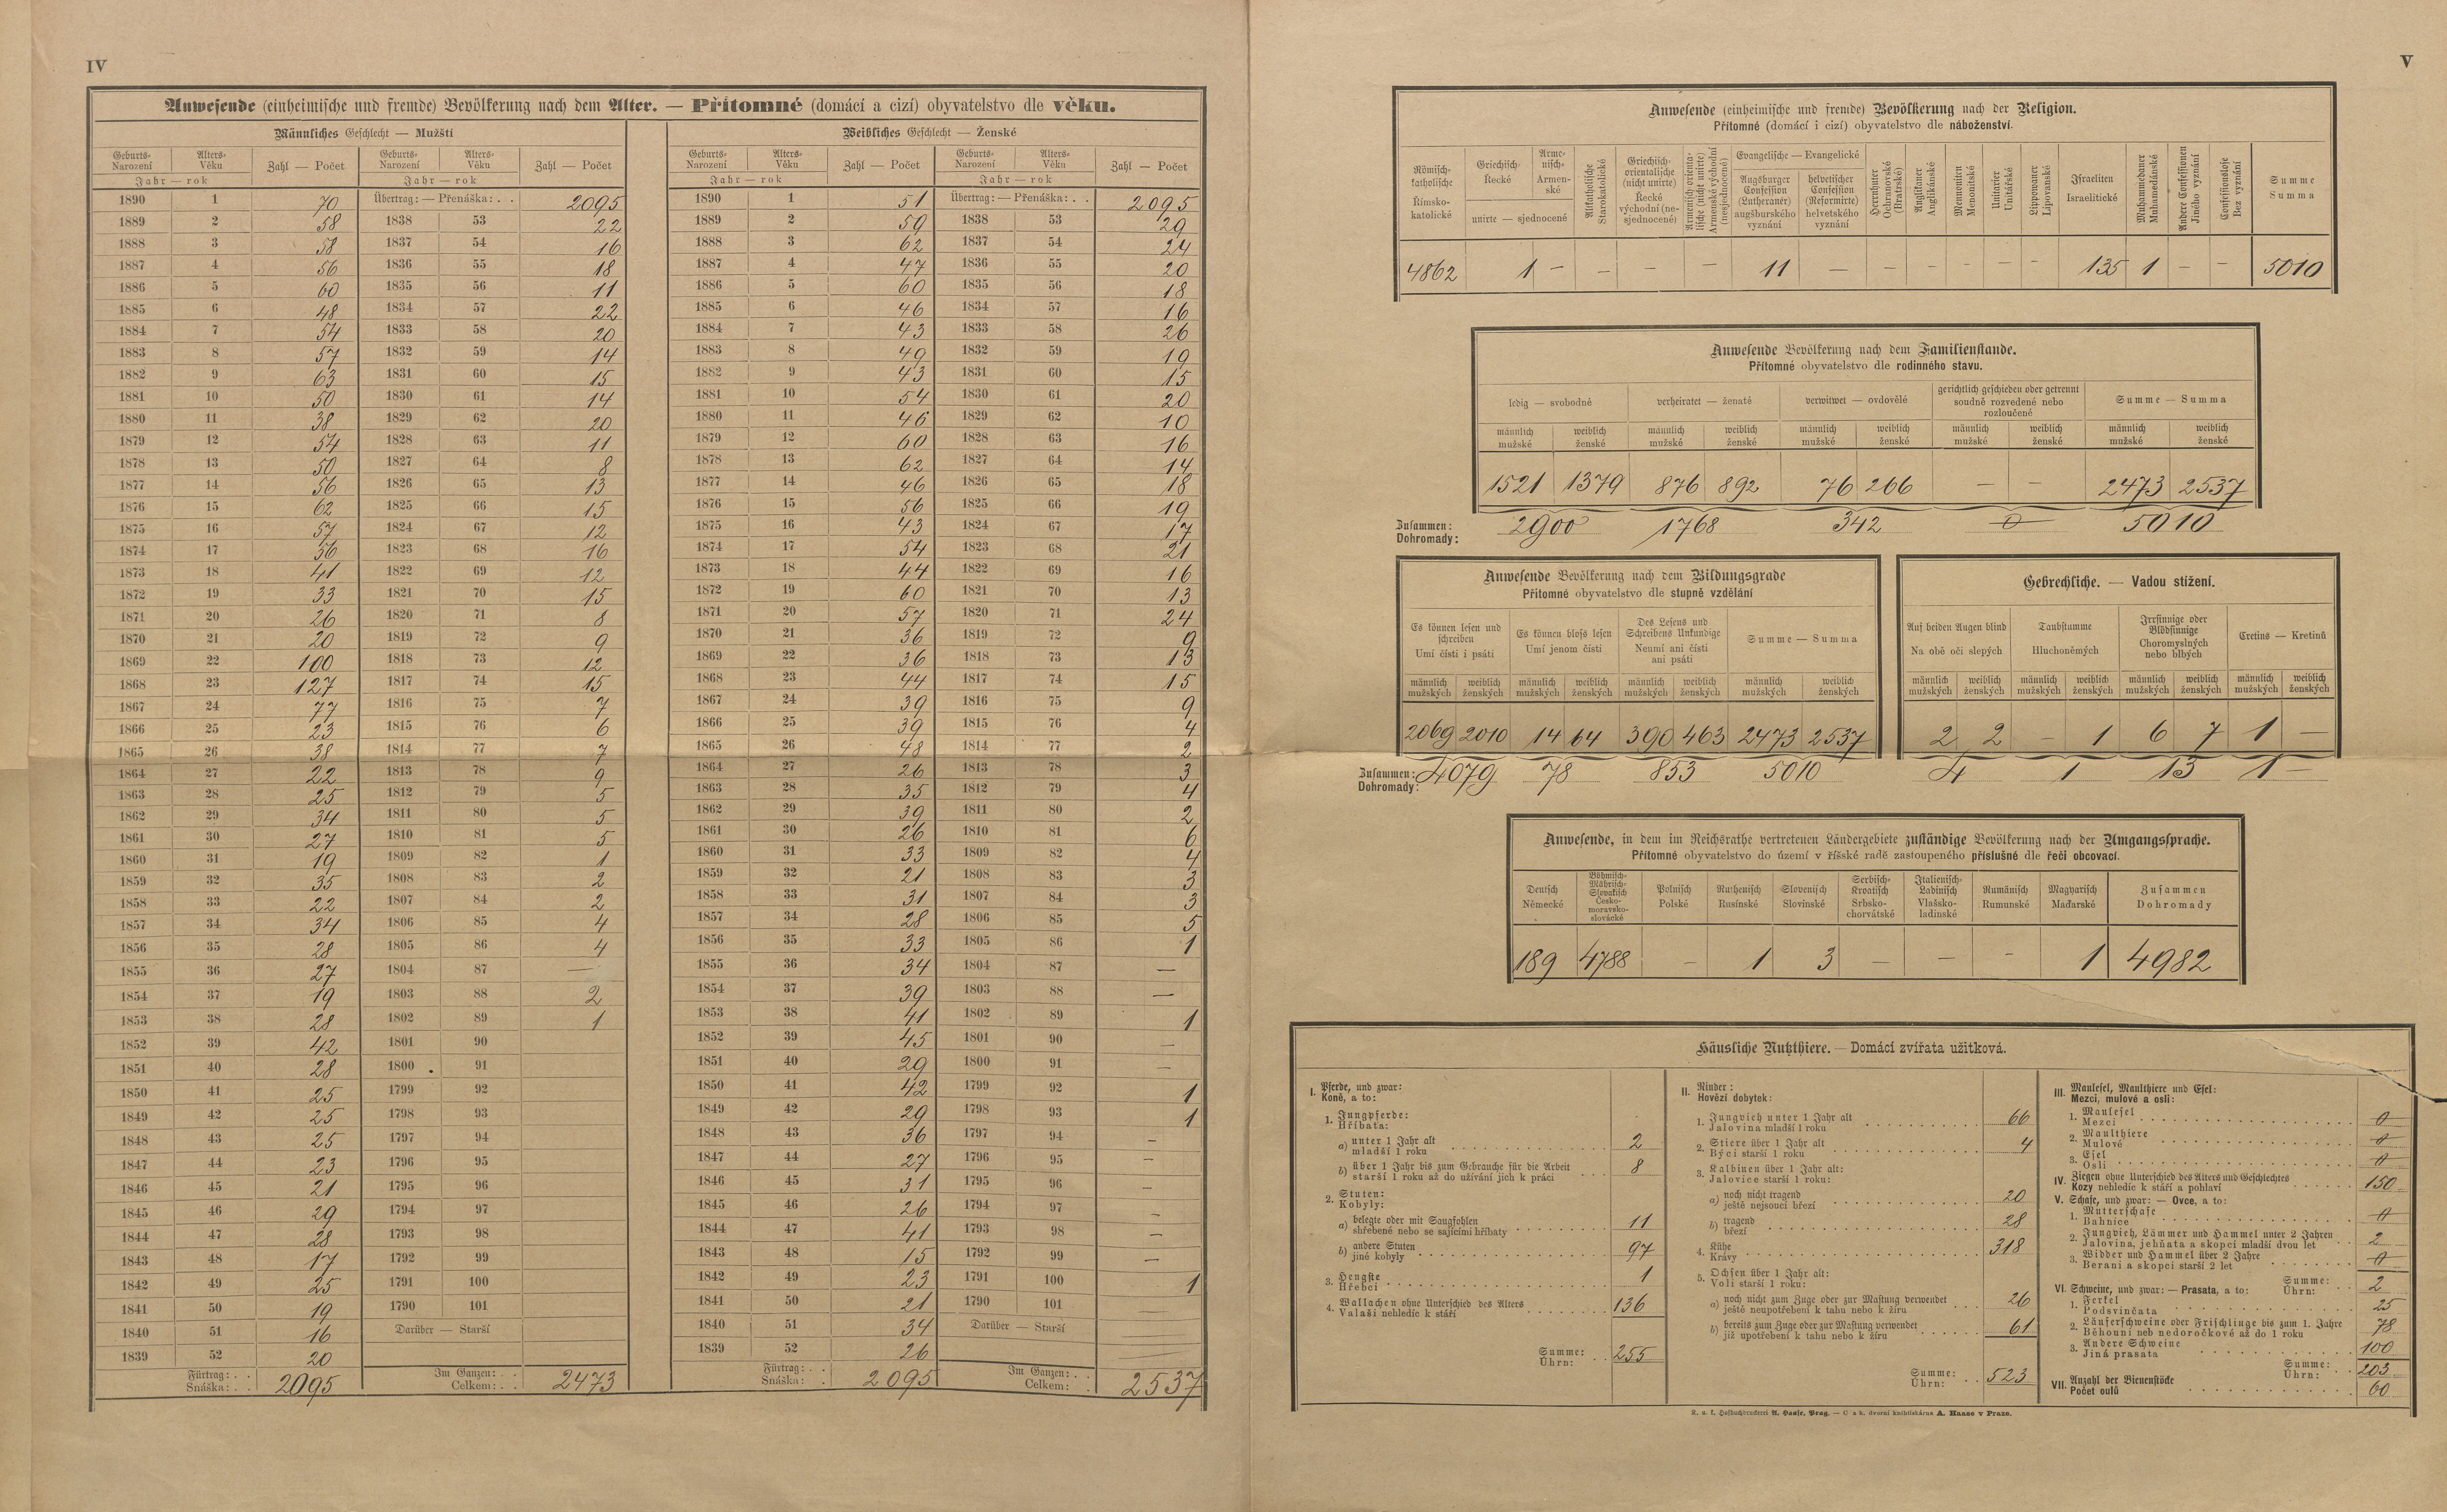 IV
Anwesende (einheimische und fremde) Bevölkerung nach dem Alter. — Přítomné (domácí a cizí) obyvatelstvo dle věku.
Männliches Geschlecht — Mužští
Geburts- Narození Alters- Věku Zahl — Počet Geburts- Narození Alters- Věku Zahl — Počet
Jahr — rok Jahr — rok
1890 1 70 Übertrag: — Přenáška: . . 2095
1889 2 58 1838 53 22
1888 3 58 1837 54 16
1887 4 56 1836 55 18
1886 5 60 1835 56 11
1885 6 48 1834 57 22
1884 7 54 1833 58 20
1883 8 57 1832 59 14
1882 9 63 1831 60 15
1881 10 50 1830 61 14
1880 11 38 1829 62 20
1879 12 54 1828 63 11
1878 13 50 1827 64 8
1877 14 56 1826 65 13
1876 15 62 1825 66 15
1875 16 57 1824 67 12
1874 17 56 1823 68 16
1873 18 41 1822 69 12
1872 19 33 1821 70 15
1871 20 26 1820 71 8
1870 21 20 1819 72 9
1869 22 100 1818 73 12
1868 23 127 1817 74 15
1867 24 77 1816 75 7
1866 25 23 1815 76 6
1865 26 38 1814 77 7
1864 27 22 1813 78 9
1863 28 25 1812 79 5
1862 29 34 1811 80 5
1861 30 27 1810 81 5
1860 31 19 1809 82 1
1859 32 35 1808 83 2
1858 33 22 1807 84 2
1857 34 34 1806 85 4
1856 35 28 1805 86 4
1855 36 27 1804 87 —
1854 37 19 1803 88 2
1853 38 28 1802 89 1
1852 39 42 1801 90
1851 40 28 1800 91
1850 41 25 1799 92
1849 42 25 1798 93
1848 43 25 1797 94
1847 44 23 1796 95
1846 45 21 1795 96
1845 46 29 1794 97
1844 47 28 1793 98
1843 48 17 1792 99
1842 49 25 1791 100
1841 50 19 1790 101
1840 51 16 Darüber — Starší
1839 52 20
Fürtrag: . . Snáška: . . 2095 Im Ganzen: . . Celkem: . . 2473
Weibliches Geschlecht — Ženské
Geburts- Narození Alters- Věku Zahl — Počet Geburts- Narození Alters- Věku Zahl — Počet
Jahr — rok Jahr — rok
1890 1 51 Übertrag: — Přenáška: . . 2095
1889 2 59 1838 53 29
1888 3 62 1837 54 24
1887 4 47 1836 55 20
1886 5 60 1835 56 18
1885 6 46 1834 57 16
1884 7 43 1833 58 26
1883 8 49 1832 59 19
1882 9 43 1831 60 15
1881 10 54 1830 61 20
1880 11 46 1829 62 10
1879 12 60 1828 63 16
1878 13 62 1827 64 14
1877 14 46 1826 65 18
1876 15 56 1825 66 19
1875 16 43 1824 67 17
1874 17 54 1823 68 21
1873 18 44 1822 69 16
1872 19 60 1821 70 13
1871 20 57 1820 71 24
1870 21 36 1819 72 9
1869 22 36 1818 73 13
1868 23 44 1817 74 15
1867 24 39 1816 75 9
1866 25 39 1815 76 4
1865 26 48 1814 77 2
1864 27 26 1813 78 3
1863 28 35 1812 79 4
1862 29 39 1811 80 2
1861 30 26 1810 81 6
1860 31 33 1809 82 4
1859 32 21 1808 83 3
1858 33 31 1807 84 3
1857 34 28 1806 85 5
1856 35 33 1805 86 1
1855 36 34 1804 87 —
1854 37 39 1803 88 —
1853 38 41 1802 89 1
1852 39 45 1801 90 —
1851 40 29 1800 91 —
1850 41 42 1799 92 1
1849 42 29 1798 93 1
1848 43 36 1797 94 —
1847 44 27 1796 95 —
1846 45 31 1795 96 —
1845 46 26 1794 97 —
1844 47 41 1793 98 —
1843 48 15 1792 99 —
1842 49 23 1791 100 1
1841 50 21 1790 101
1840 51 34 Darüber — Starší
1839 52 26
Fürtrag: . . Snáška: . . 2095 Im Ganzen: . . Celkem: . . 2537
V
Anwesende (einheimische und fremde) Bevölkerung nach der Religion.
Přítomné (domácí i cizí) obyvatelstvo dle náboženství.
Römisch-katholische Římsko-katolické
Griechisch- Řecké
Armenisch- Armenské
unirte — sjednocené
Altkatholische Starokatolické
Griechisch-orientalische (nicht unirte) Řecké východní (nesjednocené)
Armenisch orientalische (nicht unirte) Armenské východní (nesjednocené)
Evangelische — Evangelické
Augsburger Confession (Lutheraner) augšburského vyznání
helvetischer Confession (Reformirte) helvetského vyznání
Herrnhuter Ochranovské (Bratrské)
Anglikaner Anglikánské
Mennoniten Menonitské
Unitarier Unitářské
Lippowaner Lipovanské
Israeliten Israelitické
Muhammedaner Muhamedánské
Andere Confessionen Jiného vyznání
Confessionslose Bez vyznání
Summe Summa
4862 1 — — — — 11 — — — — — — 135 1 — — 5010
Anwesende Bevölkerung nach dem Familienstande.
Přítomné obyvatelstvo dle rodinného stavu.
ledig — svobodné verheiratet — ženaté verwitwet — ovdovělé gerichtlich geschieden oder getrennt soudně rozvedené nebo rozloučené Summe — Summa
männlich mužské weiblich ženské männlich mužské weiblich ženské männlich mužské weiblich ženské männlich mužské weiblich ženské männlich mužské weiblich ženské
1521 1379 876 892 76 266 — — 2473 2537
Zusammen: Dohromady: 2900 1768 342 0 5010
Anwesende Bevölkerung nach dem Bildungsgrade
Přítomné obyvatelstvo dle stupně vzdělání
Es können lesen und schreiben Umí čísti i psáti
Es können bloss lesen Umí jenom čísti
Des Lesens und Schreibens Unkundige Neumí ani čísti ani psáti
Summe — Summa
männlich mužských weiblich ženských männlich mužských weiblich ženských männlich mužských weiblich ženských männlich mužských weiblich ženských
2069 2010 14 64 390 463 2473 2537
Zusammen: Dohromady: 4079 78 853 5010
Gebrechliche. — Vadou stížení.
Auf beiden Augen blind Na obě oči slepých
Taubstumme Hluchoněmých
Irrsinnige oder Blödsinnige Choromyslných nebo blbých
Cretins — Kretinů
männlich mužských weiblich ženských männlich mužských weiblich ženských männlich mužských weiblich ženských männlich mužských weiblich ženských
2 2 — 1 6 7 1 —
4 1 13 1 —
Anwesende, in dem im Reichsrathe vertretenen Ländergebiete zuständige Bevölkerung nach der Umgangssprache.
Přítomné obyvatelstvo do území v říšské radě zastoupeného příslušné dle řeči obcovací.
Deutsch Německé
Böhmisch-Mährisch-Slovakisch Česko-moravsko-slovácké
Polnisch Polské
Ruthenisch Rusínské
Slovenisch Slovinské
Serbisch-Kroatisch Srbsko-chorvátské
Italienisch-Ladinisch Vlašsko-ladinské
Rumänisch Rumunské
Magyarisch Maďarské
Zusammen Dohromady
189 4788 — 1 3 — — — 1 4982
Häusliche Nutzthiere. — Domácí zvířata užitková.
I. Pferde, und zwar:
Koně, a to:
1. Jungpferde:
Hříbata:
a) unter 1 Jahr alt
mladší 1 roku 2
b) über 1 Jahr bis zum Gebrauche für die Arbeit
starší 1 roku až do užívání jich k práci 8
2. Stuten:
Kobyly:
a) belegte oder mit Saugfohlen
shřebené nebo se sajícími hříbaty 11
b) andere Stuten
jiné kobyly 97
3. Hengste
Hřebci 1
4. Wallachen ohne Unterschied des Alters
Valaši nehledíc k stáří 136
Summe:
Úhrn: 255
II. Rinder:
Hovězí dobytek:
1. Jungvieh unter 1 Jahr alt
Jalovina mladší 1 roku 66
2. Stiere über 1 Jahr alt
Býci starší 1 roku 4
3. Kalbinen über 1 Jahr alt:
Jalovice starší 1 roku:
a) noch nicht tragend
ještě nejsoucí březí 20
b) tragend
březí 28
4. Kühe
Krávy 318
5. Ochsen über 1 Jahr alt:
Voli starší 1 roku:
a) noch nicht zum Zuge oder zur Mastung verwendet
ještě neupotřebení k tahu nebo k žíru 26
b) bereits zum Zuge oder zur Mastung verwendet
již upotřebení k tahu nebo k žíru 61
Summe:
Úhrn: 523
III. Maulesel, Maulthiere und Esel:
Mezci, mulové a osli:
1. Maulesel
Mezci 0
2. Maulthiere
Mulové 0
3. Esel
Osli 0
IV. Ziegen ohne Unterschied des Alters und Geschlechtes
Kozy nehledíc k stáří a pohlaví 150
V. Schafe, und zwar: — Ovce, a to:
1. Mutterschafe
Bahnice 0
2. Jungvieh, Lämmer und Hammel unter 2 Jahren
Jalovina, jehňata a skopci mladší dvou let 2
3. Widder und Hammel über 2 Jahre
Berani a skopci starší 2 let 0
Summe:
Úhrn: 2
VI. Schweine, und zwar: — Prasata, a to:
1. Ferkel
Podsvinčata 25
2. Läuferschweine oder Frischlinge bis zum 1. Jahre
Běhouni neb nedoročkové až do 1 roku 78
3. Andere Schweine
Jiná prasata 100
Summe:
Úhrn: 203
VII. Anzahl der Bienenstöcke
Počet oulů 60
K. u. k. Hofbuchdruckerei A. Haase, Prag. — C. a k. dvorní knihtiskárna A. Haase v Praze.